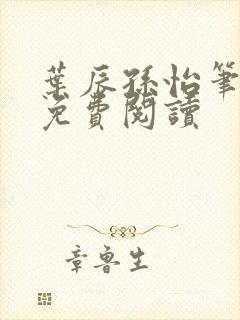 葉辰孫怡筆
免費閱讀
章魯生